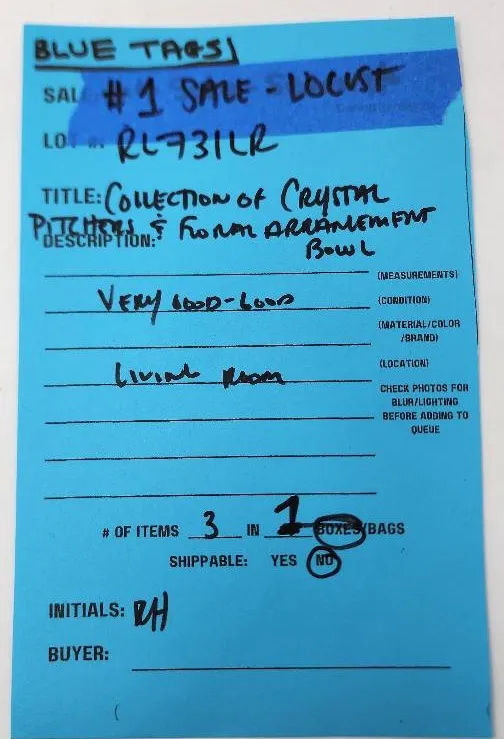 BLUE TAGS
SAL #1 SALE - LOCUST
LO RL731LR
TITLE: COLLECTION OF CRYSTAL
PITCHERS & FLORAL ARRANGEMENT
DESCRIPTION: BOWL
(MEASUREMENTS)
VERY GOOD-GOOD (CONDITION)
(MATERIAL/COLOR
/BRAND)
LIVING ROOM (LOCATION)
CHECK PHOTOS FOR
BLUR/LIGHTING
BEFORE ADDING TO
QUEUE
# OF ITEMS 3 IN 1 BOXES/BAGS
SHIPPABLE: YES NO
INITIALS: RH
BUYER: